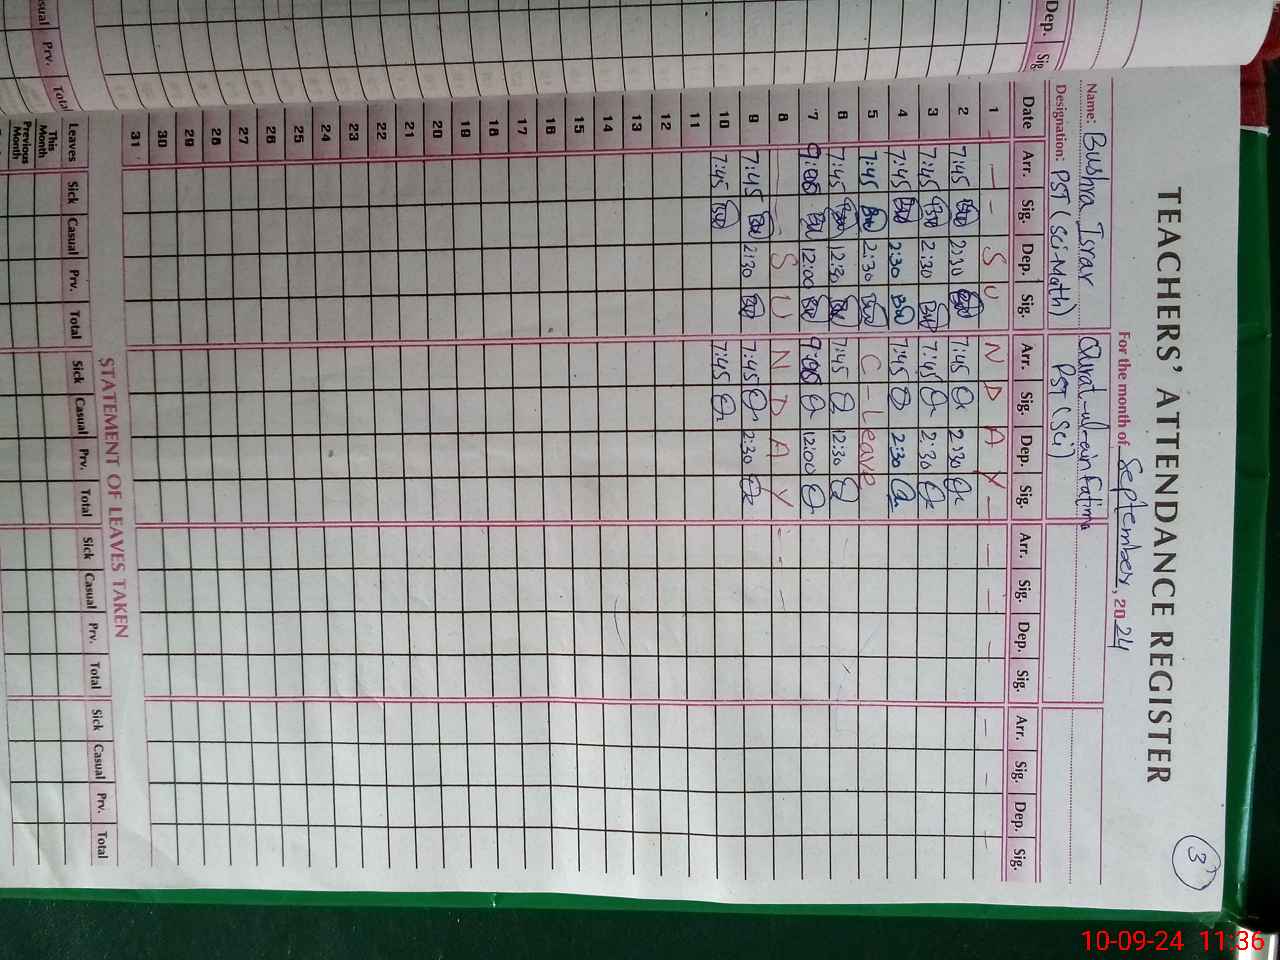 TEACHERS' ATTENDANCE REGISTER
3
For the month of September, 2024
Name: Bushra Israr Qurat-ul-ain Fatima
Designation: PST (Sci-Math) PST (Sci)
Date Arr. Sig. Dep. Sig. Arr. Sig. Dep. Sig. Arr. Sig. Dep. Sig. Arr. Sig. Dep. Sig.
1 — — S U N D A Y — — — — — — —
2 7:45 2:30 7:45 2:30
3 7:45 2:30 7:45 2:30
4 7:45 2:30 7:45 2:30
5 7:45 2:30 C-Leave
6 7:45 12:30 7:45 12:30
7 9:05 12:00 9:05 12:00
8 — — S U N D A Y - - -
9 7:45 2:30 7:45 2:30
10 7:45 7:45
11
12
13
14
15
16
17
18
19
20
21
22
23
24
25
26
27
28
29
30
31
STATEMENT OF LEAVES TAKEN
Leaves Sick Casual Prv. Total Sick Casual Prv. Total Sick Casual Prv. Total Sick Casual Prv. Total
This Month
Previous Month
Dep. Sig.
Casual Prv. Total
10-09-24 11:36